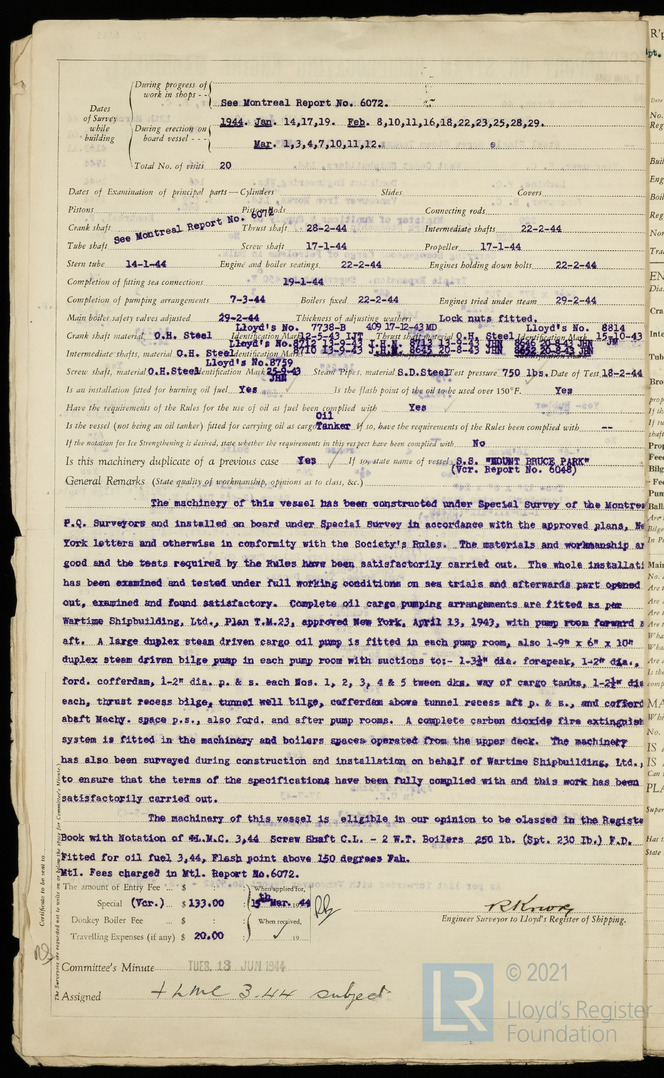 During progress of work in shops - -
See Montreal Report No. 6072.
Dates of Survey while building
During erection on board vessel - - -
1944. Jan. 14,17,19. Feb. 8,10,11,16,18,22,23,25,28,29.
Mar. 1,3,4,7,10,11,12.
Total No. of visits 20
Dates of Examination of principal parts—Cylinders Slides Covers
Pistons Piston Rods Connecting rods
Crank shaft See Montreal Report No. 6072 Thrust shaft 28-2-44 Intermediate shafts 22-2-44
Tube shaft Screw shaft 17-1-44 Propeller 17-1-44
Stern tube 14-1-44 Engine and boiler seatings 22-2-44 Engines holding down bolts 22-2-44
Completion of fitting sea connections 19-1-44
Completion of pumping arrangements 7-3-44 Boilers fixed 22-2-44 Engines tried under steam 29-2-44
Main boiler safety valves adjusted 29-2-44 Thickness of adjusting washers Lock nuts fitted.
Lloyd's No. 7738-B 409 17-12-43 MD Lloyd's No. 8814
Crank shaft material O.H. Steel Identification Mark 12-5-43 IJT Thrust shaft material O.H. Steel Identification Mark 15-10-43
Lloyd's No. 8712 13-9-43 J.H.N. 8713 13-9-43 JHN 8646 20-8-43 JHN
Intermediate shafts, material O.H. Steel Identification Marks 8710 13-9-43 J.H.N. 8645 20-8-43 JHN 8652 20-8-43 JHN
Lloyd's No. 8759
Screw shaft, material O.H.Steel Identification Mark 25-9-43 Steam Pipes, material S.D.Steel Test pressure 750 lbs. Date of Test 18-2-44
JHN
Is an installation fitted for burning oil fuel Yes Is the flash point of the oil to be used over 150°F. Yes
Have the requirements of the Rules for the use of oil as fuel been complied with Yes
Oil
Is the vessel (not being an oil tanker) fitted for carrying oil as cargo Tanker If so, have the requirements of the Rules been complied with --
If the notation for Ice Strengthening is desired, state whether the requirements in this respect have been complied with No
Is this machinery duplicate of a previous case Yes If so, state name of vessel S.S. "MOUNT BRUCE PARK"
(Vcr. Report No. 6048)
General Remarks (State quality of workmanship, opinions as to class, &c.)
The machinery of this vessel has been constructed under Special Survey of the Montre
P.Q. Surveyors and installed on board under Special Survey in accordance with the approved plans, Ne
York letters and otherwise in conformity with the Society's Rules. The materials and workmanship ar
good and the tests required by the Rules have been satisfactorily carried out. The whole installati
has been examined and tested under full working conditions on sea trials and afterwards part opened
out, examined and found satisfactory. Complete oil cargo pumping arrangements are fitted as per
Wartime Shipbuilding, Ltd., Plan T.M.23, approved New York, April 13, 1943, with pump room forward &
aft. A large duplex steam driven cargo oil pump is fitted in each pump room, also 1-9" x 6" x 10"
duplex steam driven bilge pump in each pump room with suctions to:- 1-3½" dia. forepeak, 1-2" dia.,
ford. cofferdam, 1-2" dia. p. & s. each Nos. 1, 2, 3, 4 & 5 tween dks. way of cargo tanks, 1-2½" dia
each, thrust recess bilge, tunnel well bilge, cofferdam above tunnel recess aft p. & s., and cofferd
abaft Machy. space p.s., also ford. and after pump rooms. A complete carbon dioxide fire extinguish
system is fitted in the machinery and boilers spaces operated from the upper deck. The machinery
has also been surveyed during construction and installation on behalf of Wartime Shipbuilding, Ltd.,
to ensure that the terms of the specifications have been fully complied with and this work has been
satisfactorily carried out.
The machinery of this vessel is eligible in our opinion to be classed in the Registe
Book with Notation of +L.M.C. 3,44 Screw Shaft C.L. - 2 W.T. Boilers 250 lb. (Spt. 230 lb.) F.D.
Fitted for oil fuel 3,44, Flash point above 150 degrees Fah.
Mtl. Fees charged in Mtl. Report No.6072.
The amount of Entry Fee ... $ : When applied for,
Special (Vcr.) ... $ 133.00 15th Mar. 1944
Donkey Boiler Fee ... $ : When received,
Travelling Expenses (if any) $ 20.00 19
Engineer Surveyor to Lloyd's Register of Shipping.
Committee's Minute TUES. 13 JUN 1944
Assigned + LMC 3.44 subject
Certificate to be sent to
The Surveyors are requested not to write on or below the space for Committee's Minute.
LR
© 2021
Lloyd's Register
Foundation